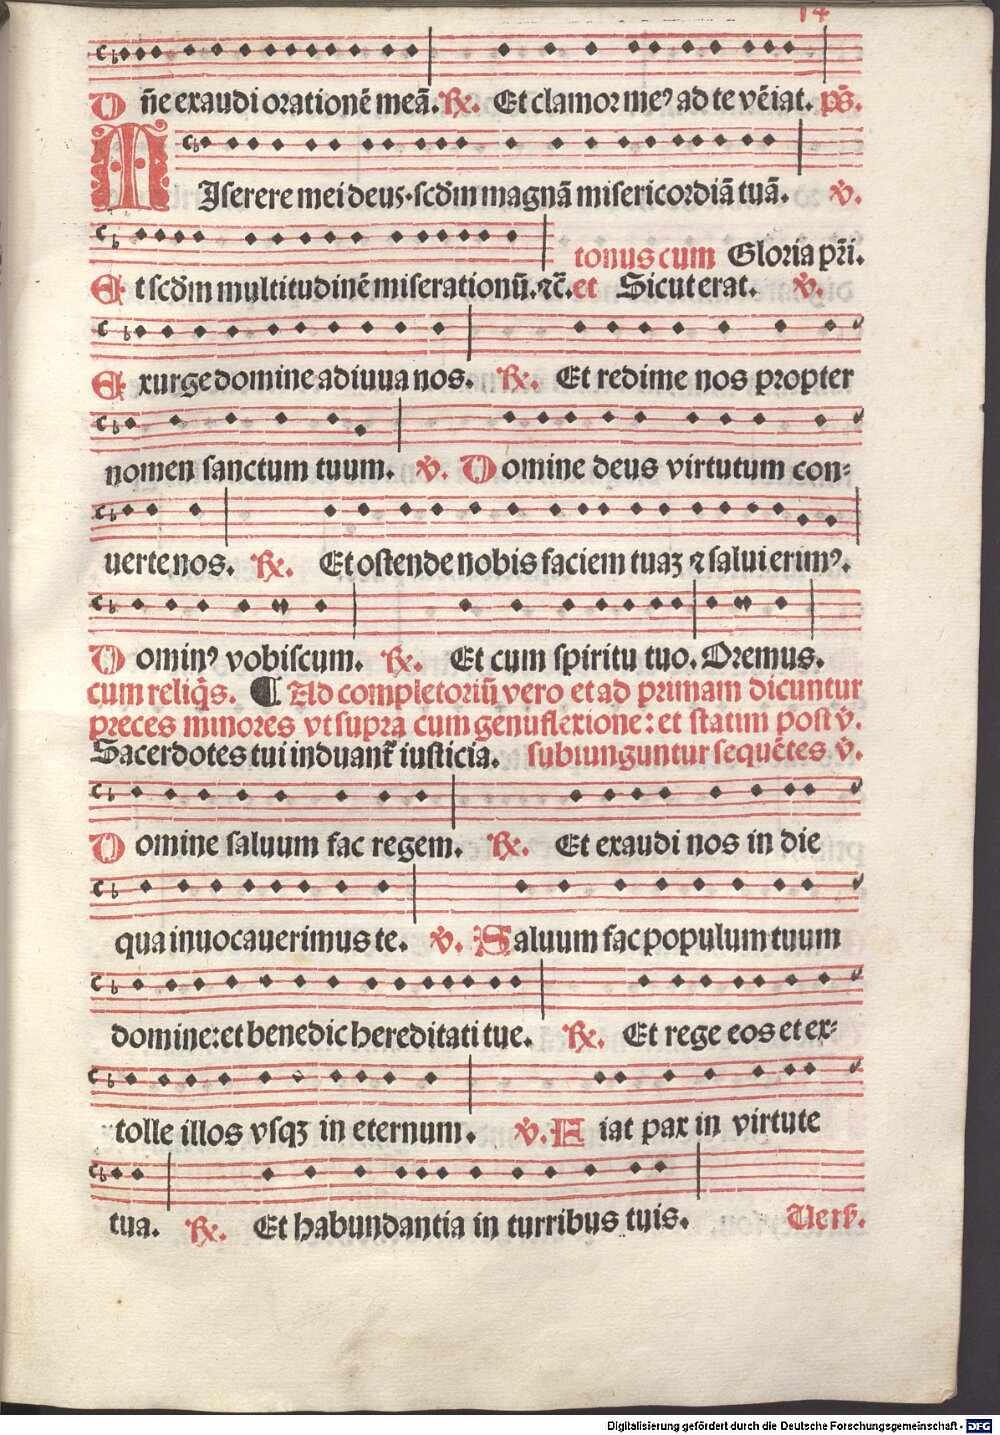 14
Dñe exaudi orationē meā. ℟. Et clamor meꝰ ad te vēiat. ps̄.
MIserere mei deus·scđm magnā misericordiā tuā. ℣.
tonus cum Gloria pr̄i.
Et scđm multitudinē miserationū.⁊c̄. et Sicut erat. ℣.
Exurge domine adiuua nos. ℟. Et redime nos propter
nomen sanctum tuum. ℣. Domine deus virtutum con⸗
uerte nos. ℟. Et ostende nobis faciem tuaꝫ ⁊ salui erimꝰ.
Dominꝰ vobiscum. ℟. Et cum spiritu tuo. Oremus.
cum reliq̄s. ¶ Ad completoriū vero et ad primam dicuntur
preces minores vt supra cum genuflexione: et statim post ℣.
Sacerdotes tui induant᷑ iusticia. subiunguntur sequētes ℣.
Domine saluum fac regem. ℟. Et exaudi nos in die
qua inuocauerimus te. ℣. Saluum fac populum tuum
domine: et benedic hereditati tue. ℟. Et rege eos et ex⸗
tolle illos vsqꝫ in eternum. ℣. Fiat pax in virtute
tua. ℟. Et habundantia in turribus tuis. Uers̄.
Digitalisierung gefördert durch die Deutsche Forschungsgemeinschaft - DFG